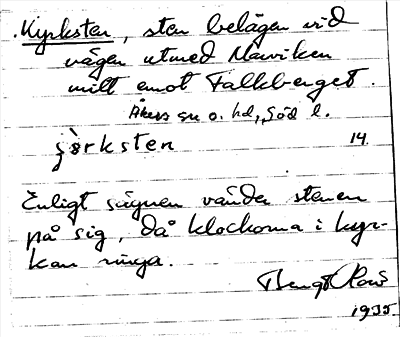 Kyrksten, sten belägen vid
vägen utmed Marviken
mitt emot Falkberget.
Åkers sn o. hd, Söd l.
şörksten 14.
Enligt sägnen vänder stenen
på sig, då klockorna i kyr-
kan ringa.
Bengt
1935.